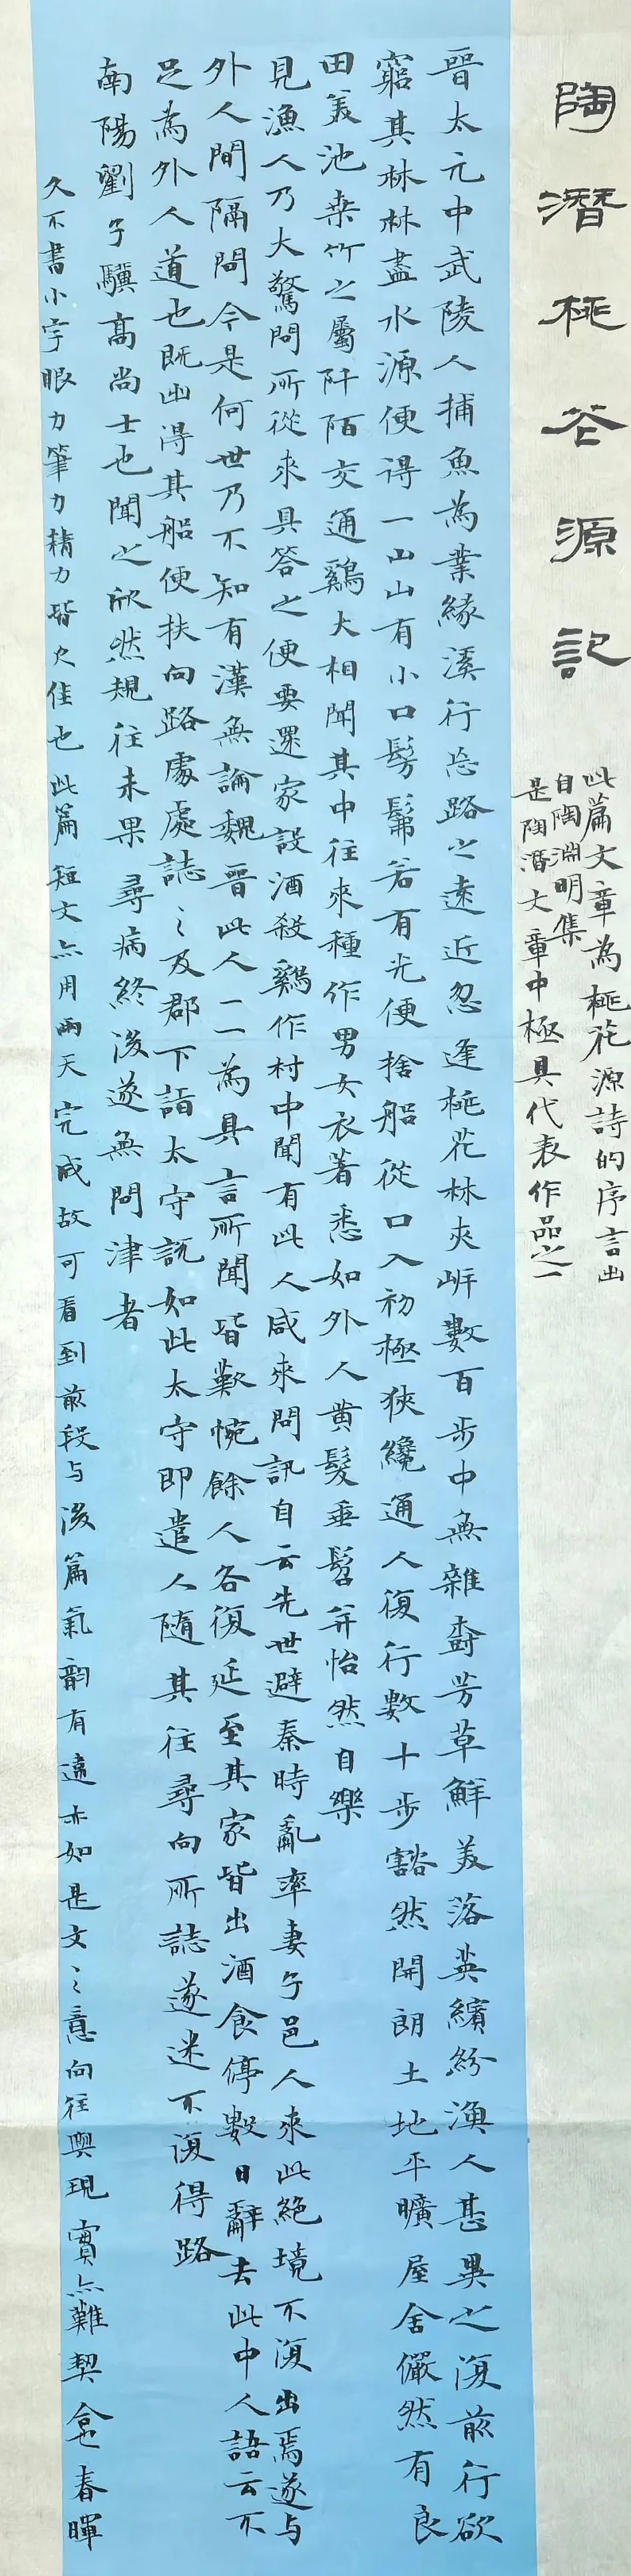 陶潛桃谷源記
此篇文章為桃花源詩的序言出
自陶淵明集
是陶潛文章中極具代表作品之一
晉太元中武陵人捕魚為業緣溪行忘路之遠近忽逢桃花林夾岸數百步中無雜樹芳草鮮美落英繽紛漁人甚異之復前行欲
窮其林林盡水源便得一山山有小口髣髴若有光便捨船從口入初極狹纔通人復行數十步豁然開朗土地平曠屋舍儼然有良
田美池桑竹之屬阡陌交通鷄犬相聞其中往來種作男女衣著悉如外人黄髮垂髫并怡然自樂
見漁人乃大驚問所從來具答之便要還家設酒殺鷄作村中聞有此人咸來問訊自云先世避秦時亂率妻子邑人來此絕境不復出焉遂与
外人間隔問今是何世乃不知有漢無論魏晉此人一一為具言所聞皆歎惋餘人各復延至其家皆出酒食停數日辭去此中人語云不
足為外人道也既出得其船便扶向路處處誌之及郡下詣太守說如此太守即遣人隨其往尋向所誌遂迷不復得路
南陽劉子驥高尚士也聞之欣然規往未果尋病終後遂無問津者
久不書小字眼力筆力精力皆欠佳也此篇短文亦用兩天完成故可看到前段与後篇氣韵有違亦如是文之意向往與現實亦難契合也春暉